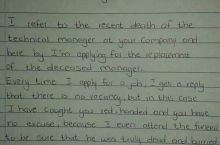 I refer to the recent death of the
technical manager at your company and
here by I'm applying for the replacement
of the deceased manager.
Every time I apply for a job, I get a reply
that there is no vacancy, but in this case
I have caught you red handed and you have
no excuse, because I even attend the funeral
to be sure that he was truly dead and buried